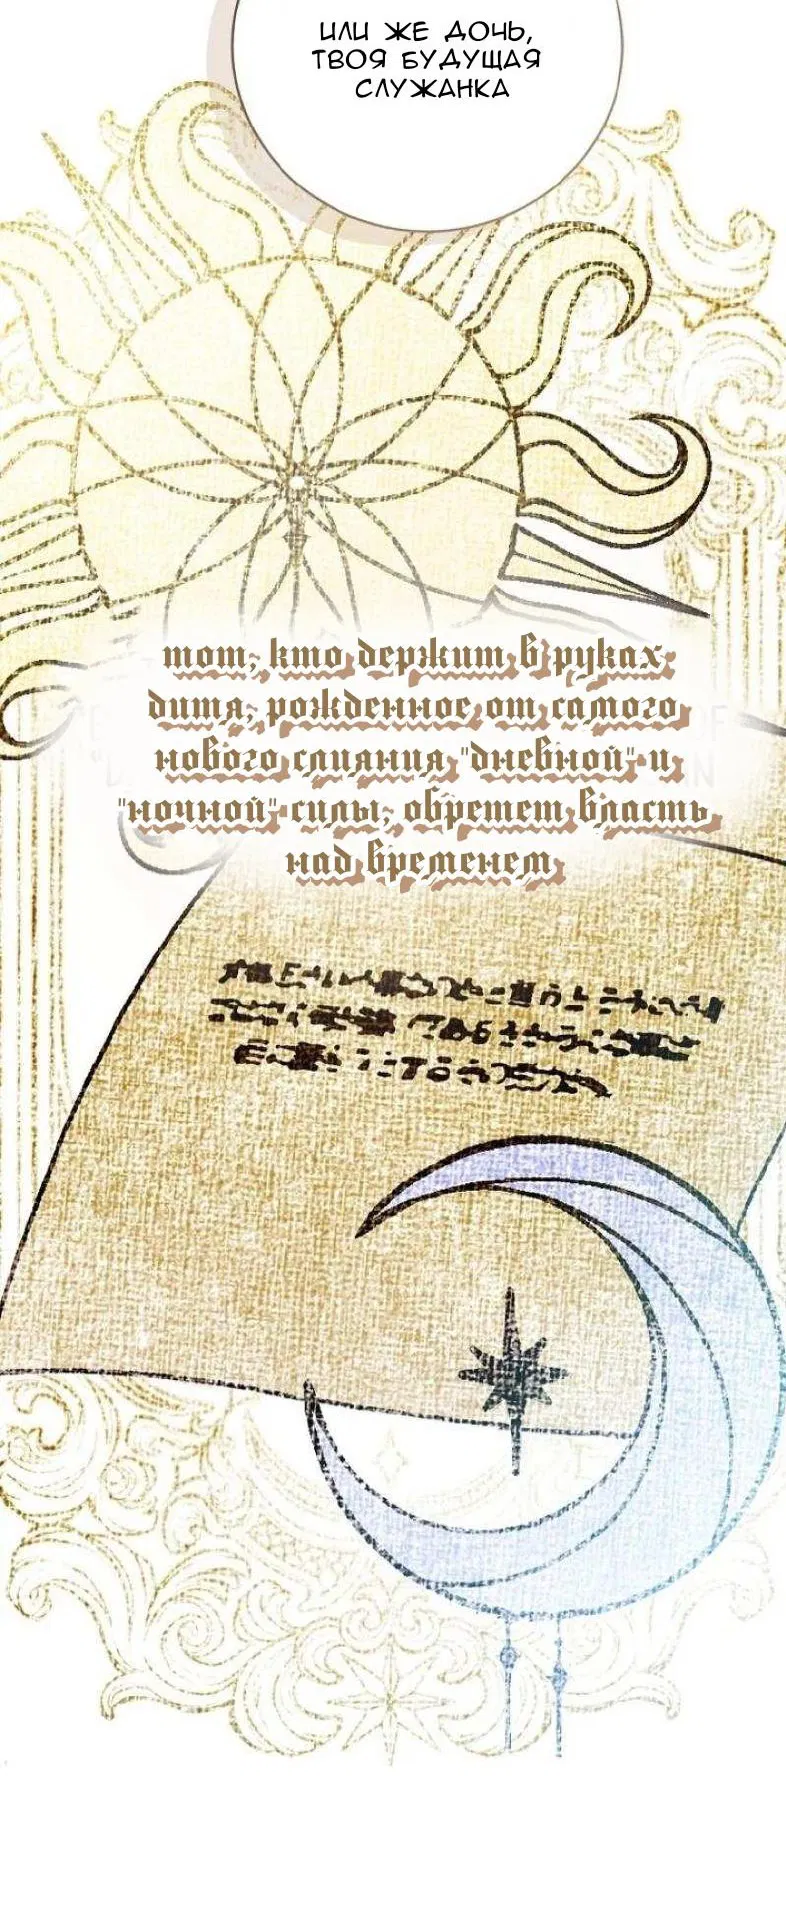 ИЛИ ЖЕ ДОЧЬ,
ТВОЯ БУДУЩАЯ
СЛУЖАНКА
тот, кто держит в руках
дитя, рожденное от самого
нового слияния "дневной" и
"ночной" силы, обретет власть
над временем